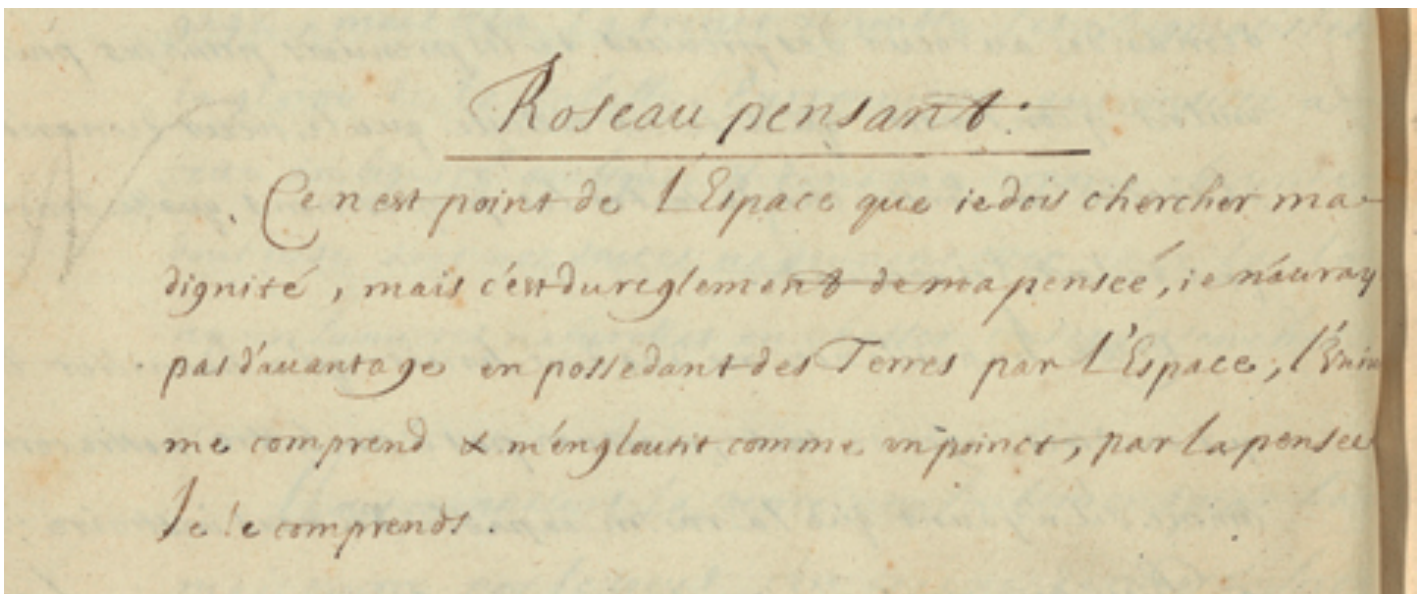 Roseau pensant.
Ce n'est point de L'Espace que ie dois chercher ma
dignité, mais c'est du reglement de ma pensée, ie n'auray
pas d'auantage en possedant des Terres par L'Espace, l'Vni
me comprend & m'engloutit comme vn poinct, par la pensée
Je le comprends.